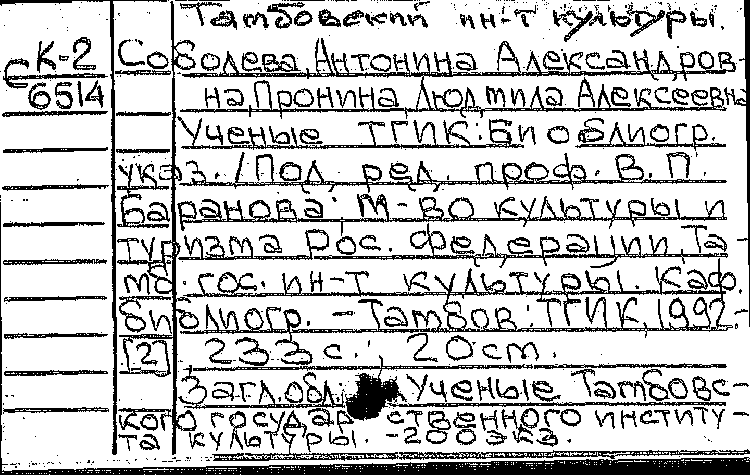 Тамбовский ин-т культуры.
К-2
С
6514
Соболева, Антонина Александров-
на, Пронина, Людмила Алексеевна
Ученые ТГИК: Библиогр.
указ. / Под ред. проф. В. П.
Баранова; М-во культуры и
туризма Рос. Федерации, Та-
мб. гос. ин-т культуры. Каф.
библиогр. - Тамбов: ТГИК, 1992-
[2], 233 с.; 20 см.
Загл. обл.: Ученые Тамбовс-
кого государственного институ-
та культуры. - 200 экз.